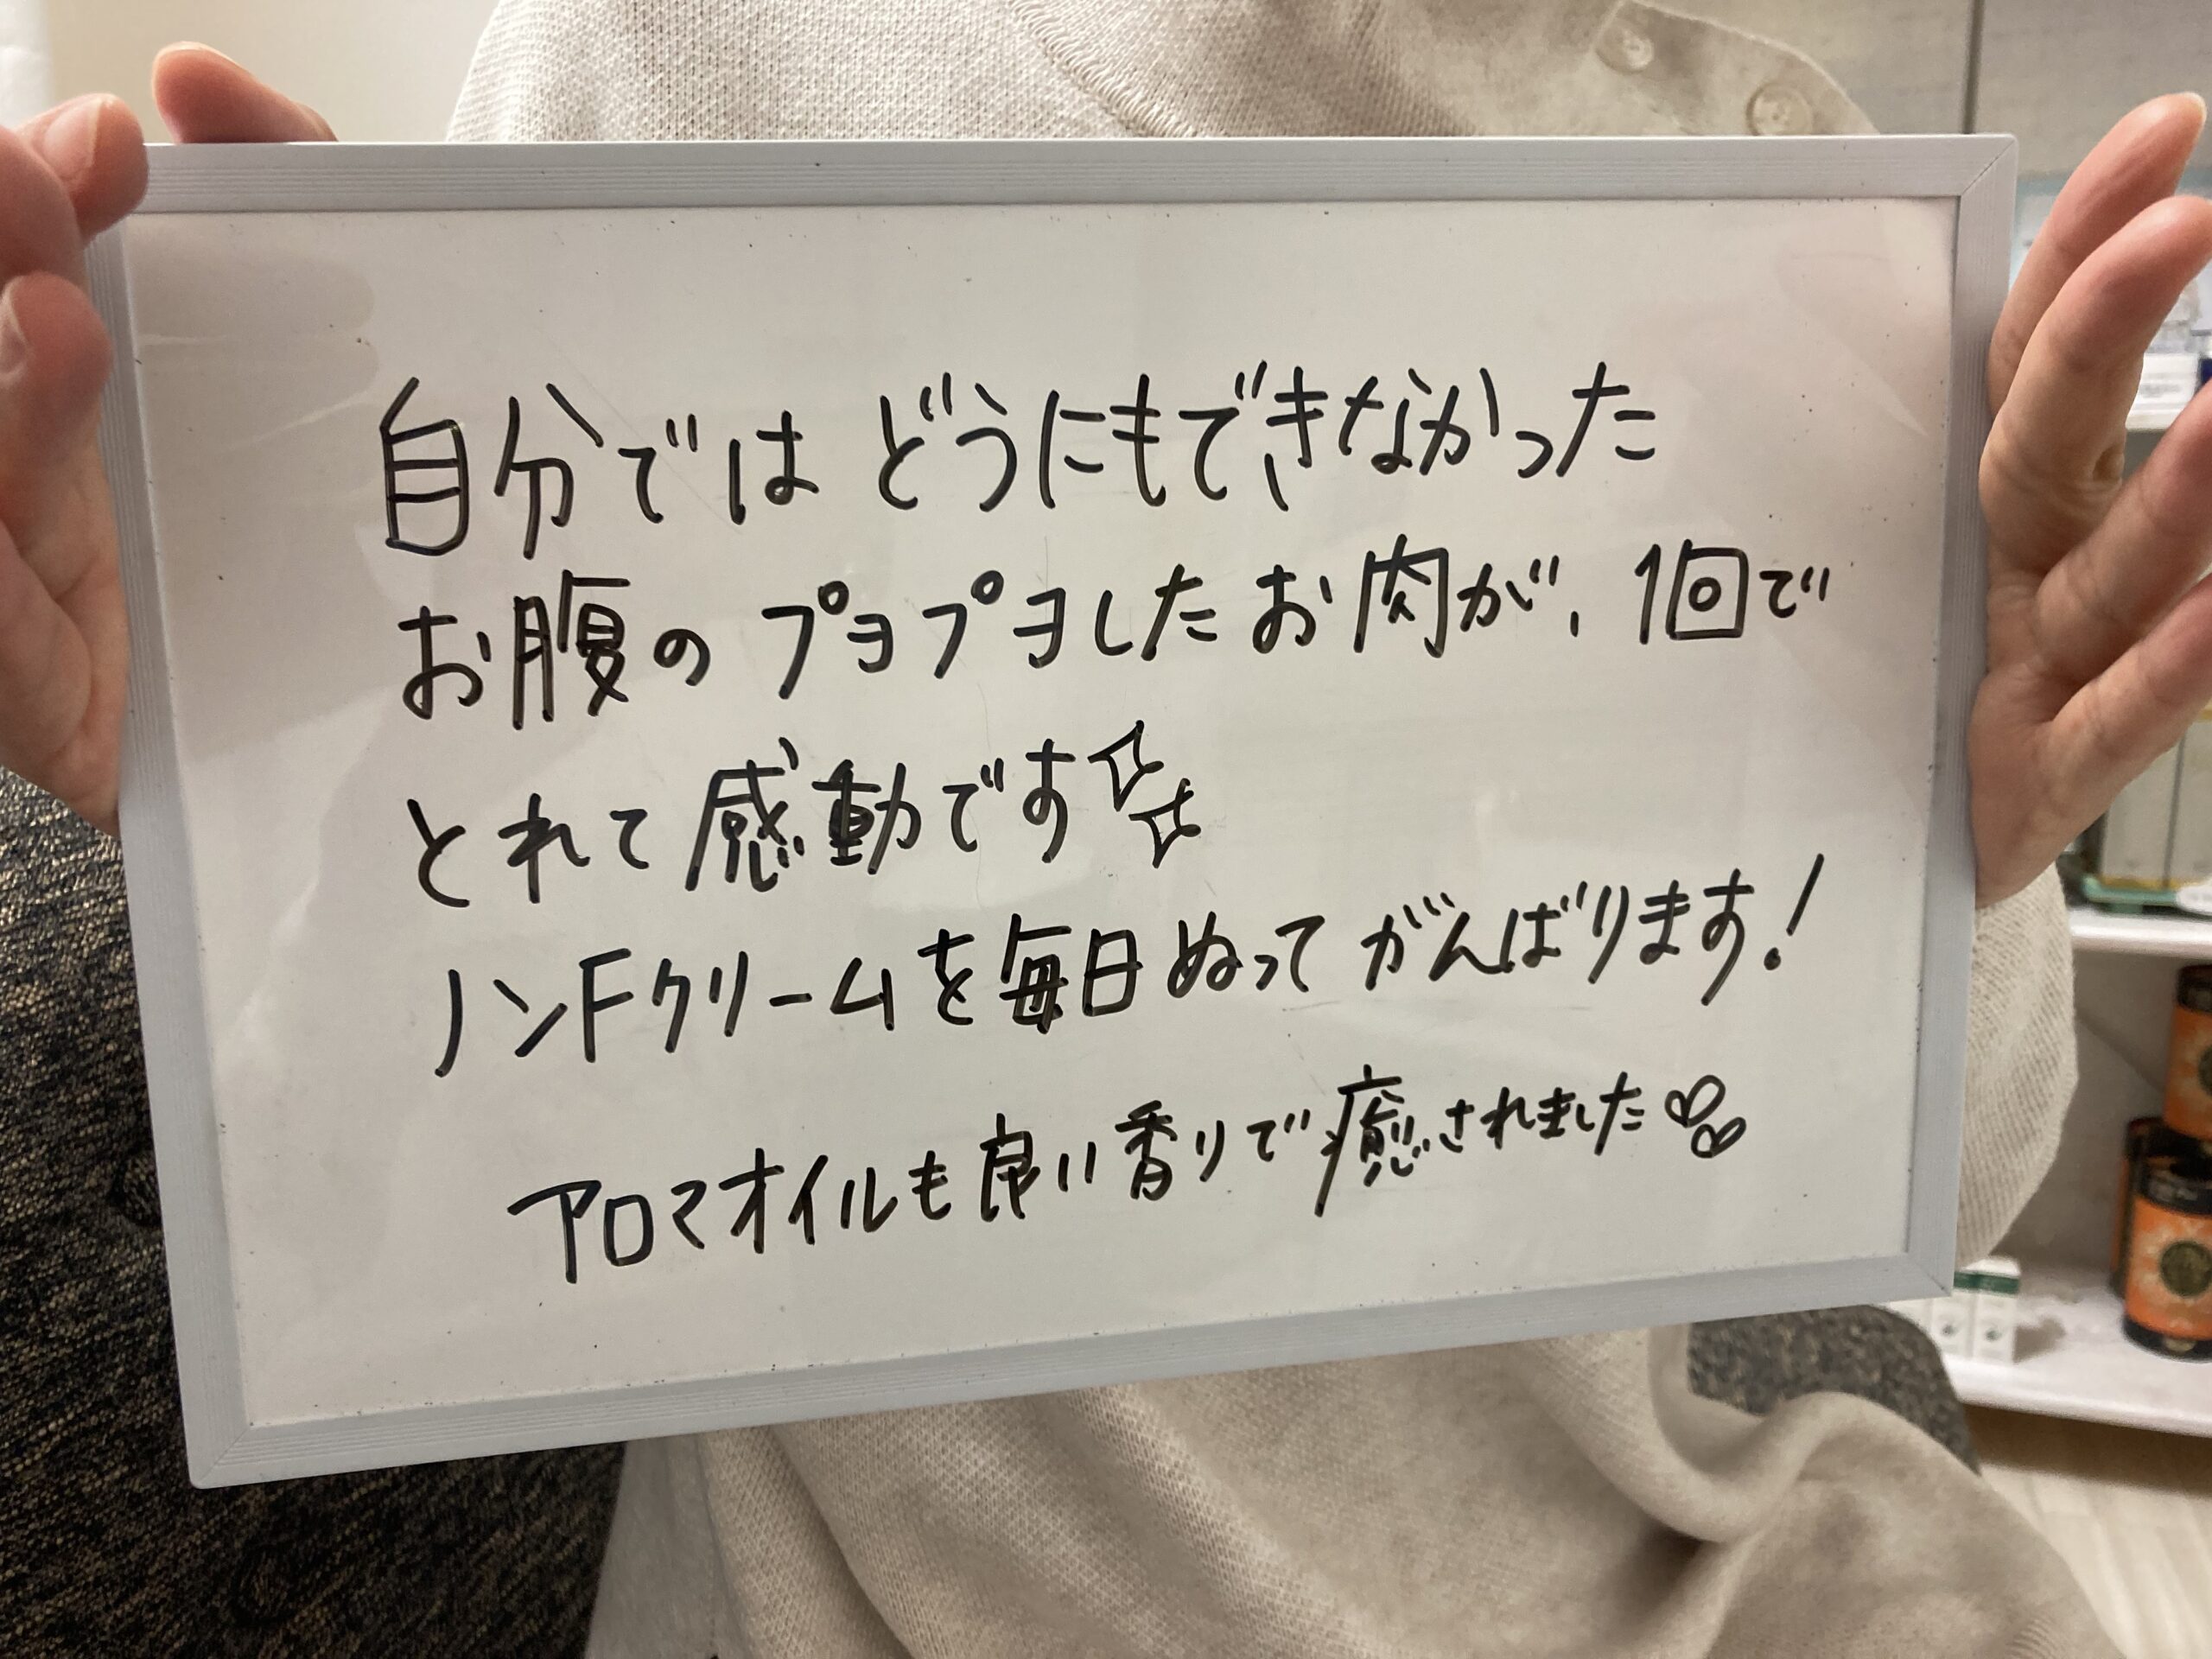 自分では どうにもできなかった
お腹の プヨプヨしたお肉が、1回で
とれて感動です
ノンFクリームを毎日ぬって がんばります!
アロマオイルも良い香りで癒されました